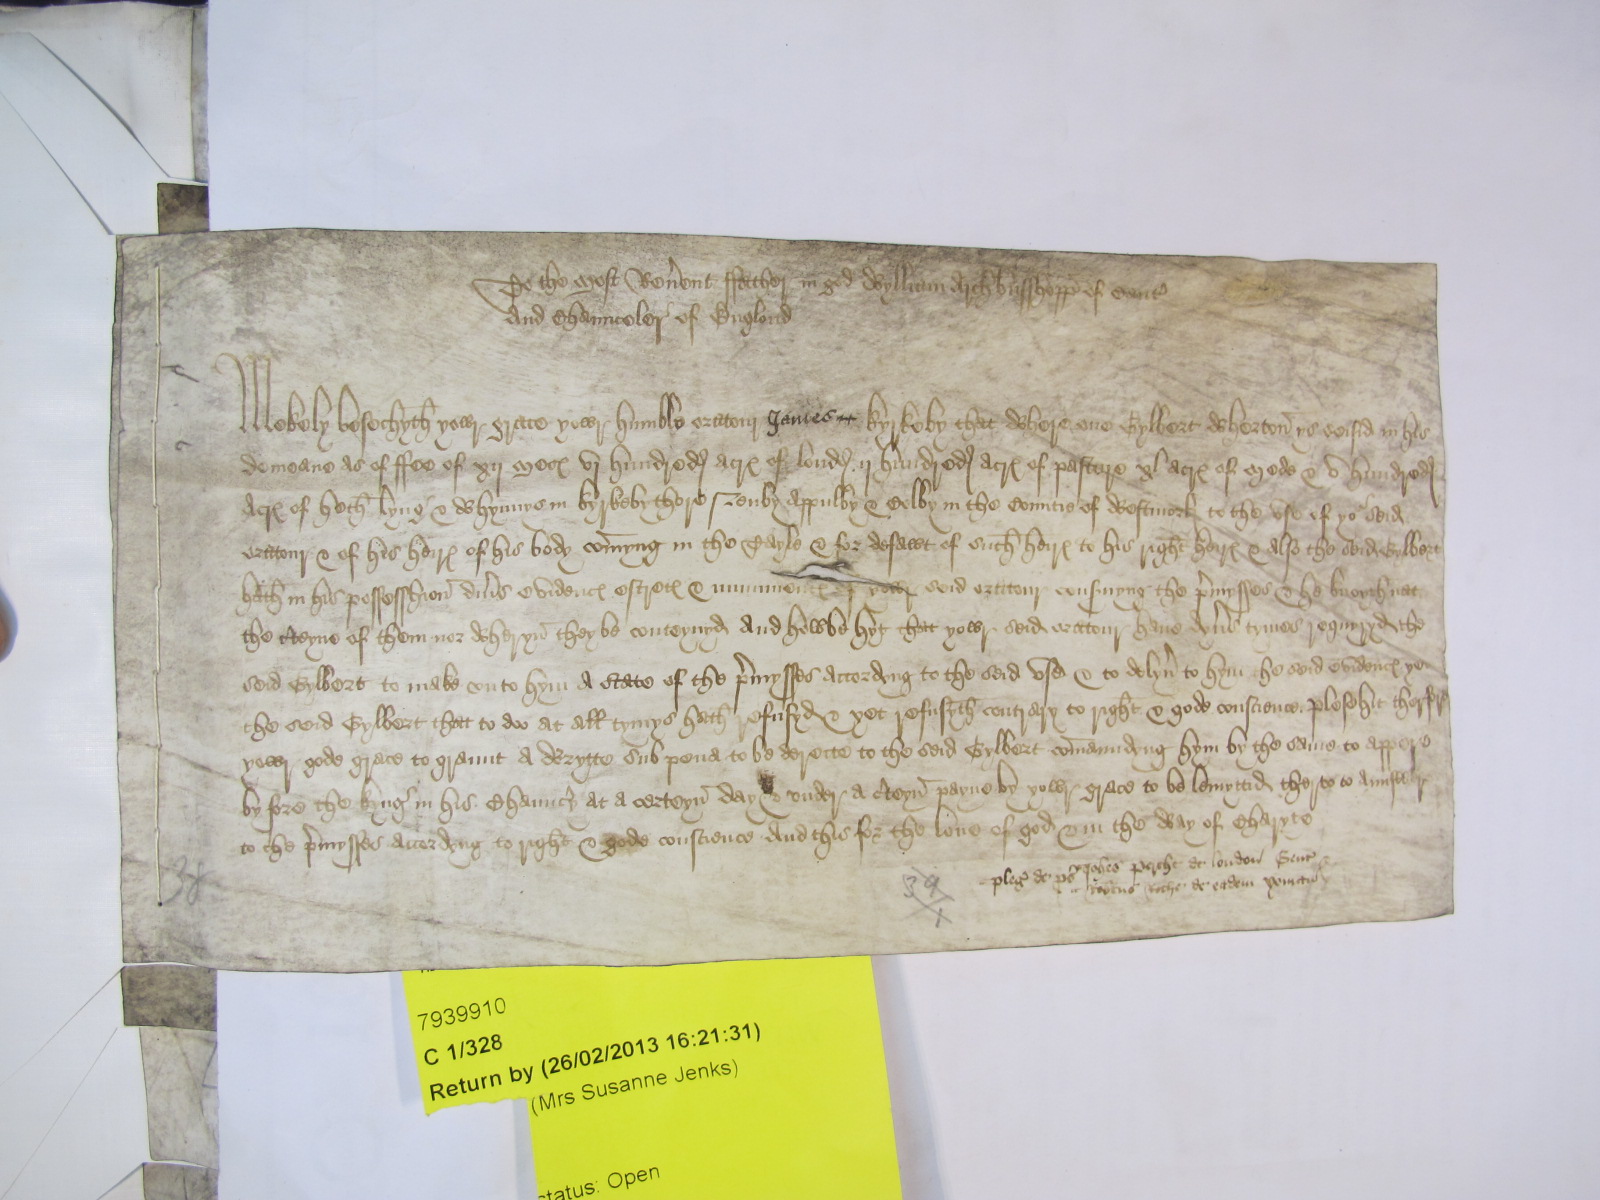 To the most Rev'ent ffather in god Wylliam Archbusshopp of Cant'
And Chaunceler of Englond
Mekely besechyth yowr grace yowr humble oratour James Kyrkeby that where one Gylbert Wherton ys seisid in his
demeane as of ffee of xij mec' vj hundred acr' of lond ij hundred acr' of pasture xl acr' of mede & v hundred
acr' of heth lyng & whynnys in kyrkeby thore Sonby Appulby & Colby in the Countie of Westmorl' to the use of yo' seid
oratour & of his heir' of his body comyng in the Tayle & for defawt of such heir' to his right heir' & also the seid Gylbert
hath in his possesshion div's evidenc' escrets & muniment' of yowr seid oratour consnyng the p'mysses & he knoyth nat
the c'teyne of them nor wheryn they be conteynyd And howbe hyt that yowr seid oratour have dyv's tymes requiryd the
seid Gylbert to make unto hym A state of the p'mysses accordyng to the seid use & to delyv' to hym the seid evidenc' yet
the seid Gylbert that to doo at all tymys hath refusyd & yet refusyth contrary to right & gode conscience plesehit therfor
yowr gode grace to graunt A wrytte Sub pena to be directe to the seid Gylbert comaundyng hym by the same to appere
by fore the kyng in his Chaunc'y at a certeyn day & under a c'teyn payne by yowr grace to be lemyttid therto to Answere
to the p'mysses accordyng to right & gode conscience And this for the love of god & in the way of Charyte
pleg' de p's Joh'es de london Gent'
de eadem yoman
38
39
7939910
C 1/328
Return by (26/02/2013 16:21:31)
(Mrs Susanne Jenks)
status: Open